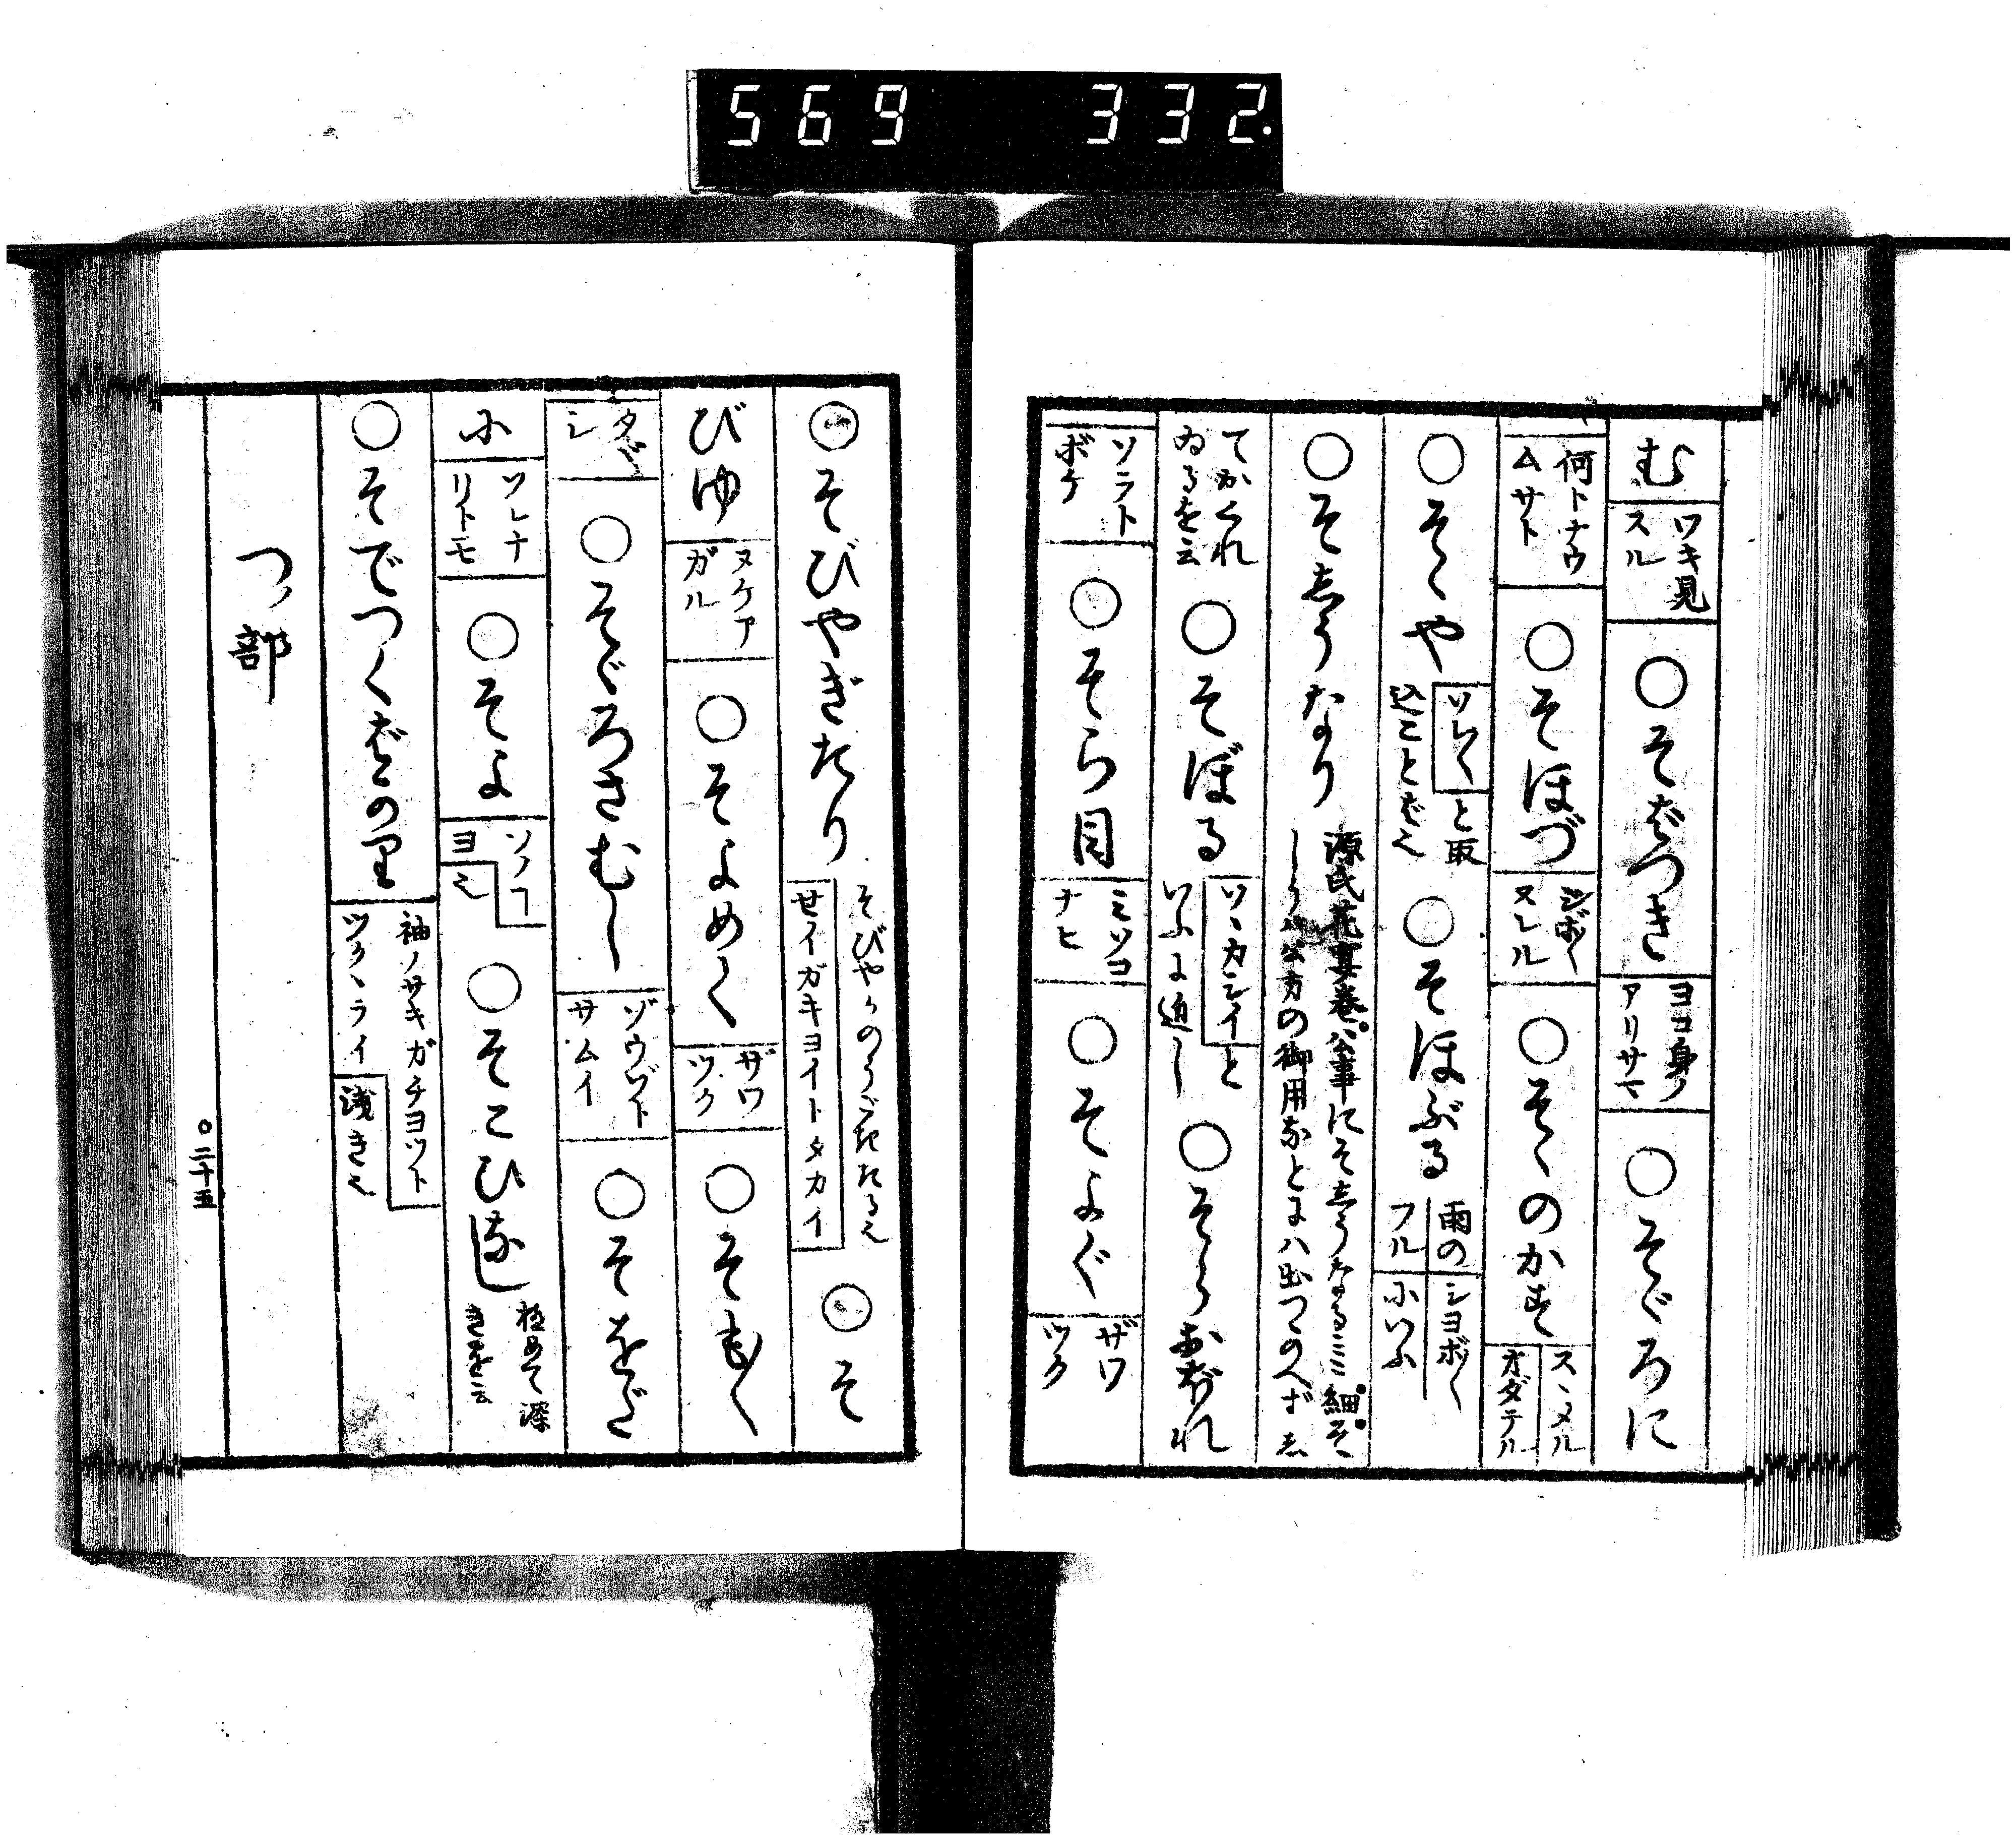 569 332.
む ワキ見スル ○そばつき ヨコ身ノアリサマ ○そゞろに
何トナウムサト ○そほづ シボ〳〵ヌレル ○そゝのかす スヽメル オダテル
○そゝや ソレ〳〵と驱 ○そほぶる 雨のシヨボ〳〵フルにいふ
○そしうなり 源氏花宴巻公事にそしうなるミ細そ
しうハ公方の御用などにハ出つのへず
てかくれゐるを云 ○そぼる ソヽカシイといふに近し ○そらおぼれ
ソラトボケ ○そら目 ミソコナヒ ○そよぐ ザワツク
○そびやぎたり せイガキヨイトタカイ ○そ
びゆ ヌケアガル ○そよめく ザワツク ○そもく
タヾシ ○そゞろさむし ゾウゾトサムイ ○そをだ
に ソレナリトモ ○そよ ソノコヨ也 ○そこひなし 極めて深きを云
○そでつくばかり 袖ノサキガチヨツトツクヽライ 浅き也
つノ部
○二十五